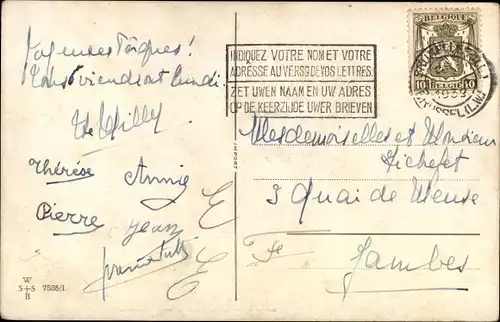 Joyeuses Pâques!
Nous viendrons lundi
Willy
Thérèse Annie
Pierre Jean
INDIQUEZ VOTRE NOM ET VOTRE
ADRESSE AU VERSO DE VOS LETTRES.
ZET UWEN NAAM EN UW ADRES
OP DE KEERZIJDE UWER BRIEVEN
BELGIQUE
10 BELGIË 10
Mesdemoiselles et Monsieur
3 Quai de Meuse
Jambes
IMPORT
W
S+S 7535/1
B